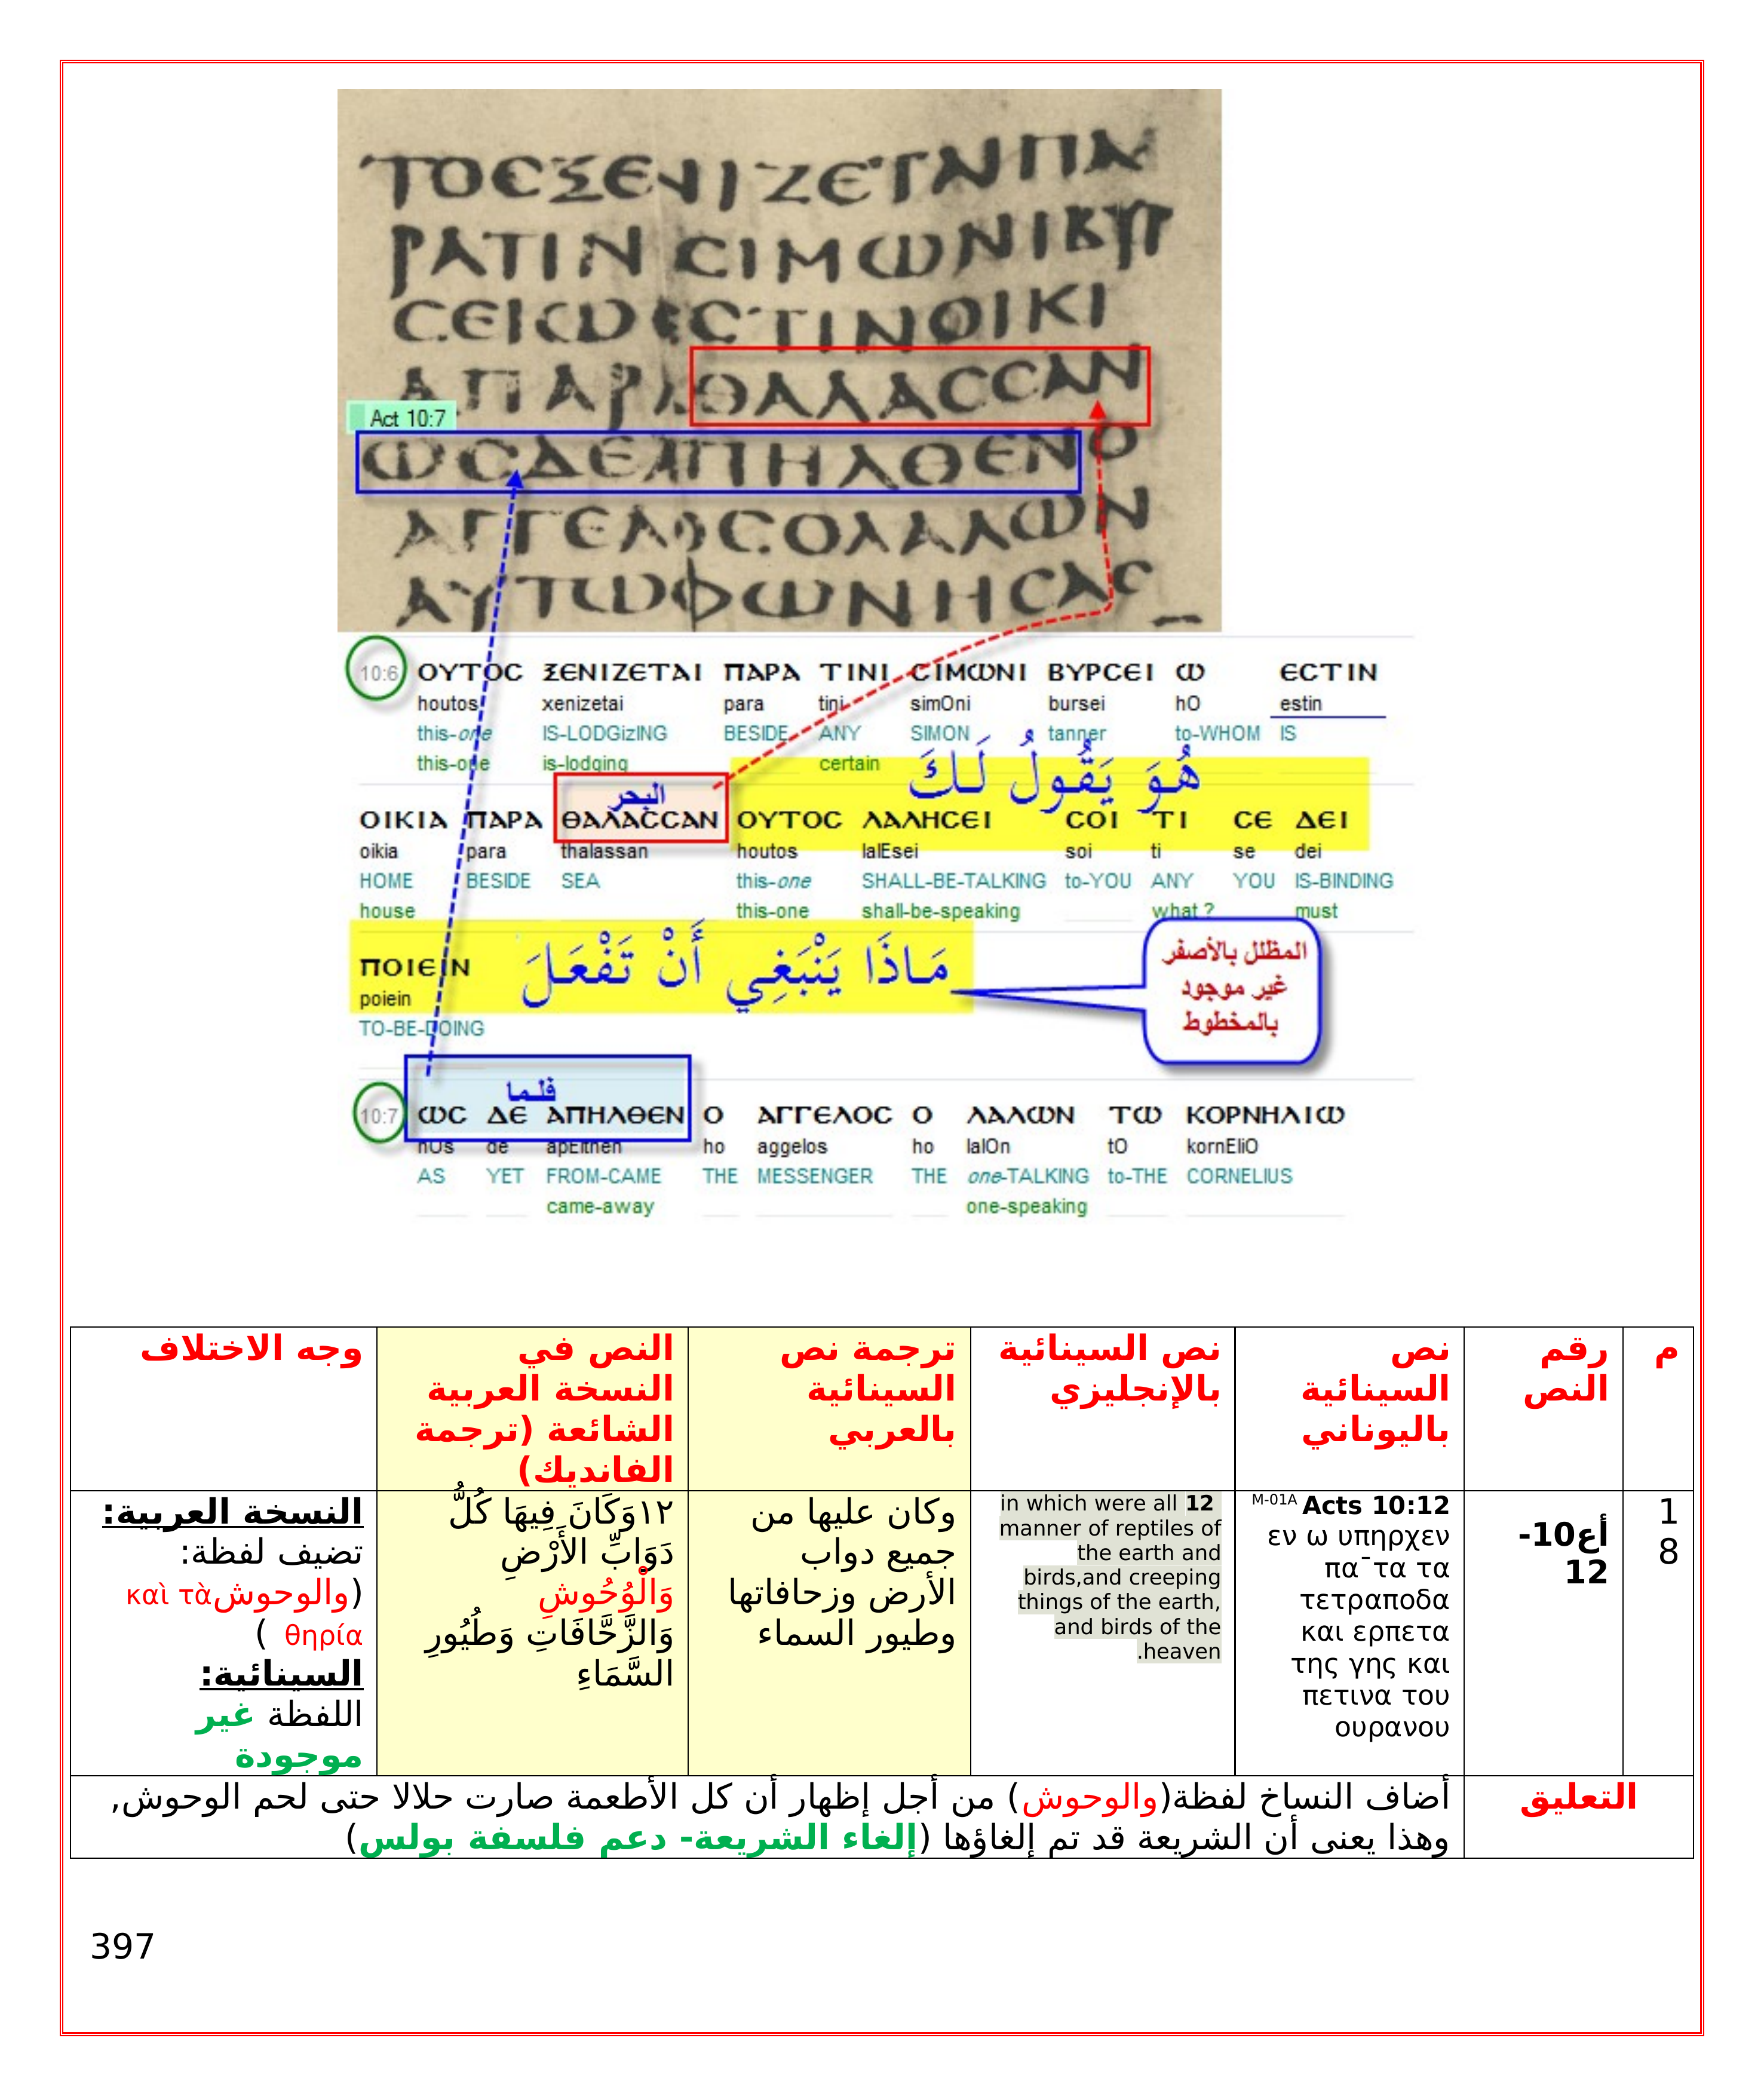 ΤΟΣΞΕΝΙΖΕΤΑΙΠΑ
ΡΑΤΙΝΙϹΙΜΩΝΙΒΥΡ
ϹΕΙΩΕϹΤΙΝΟΙΚΙ
ΑΠΑΡΑΘΑΛΑϹϹΑΝ
Act 10:7
ΩϹΔΕΑΠΗΛΘΕΝΟ
ΑΓΓΕΛΟϹΟΛΑΛΩΝ
ΑΥΤΩΦΩΝΗϹΑϹ
10:6 ΟΥΤΟϹ ΞΕΝΙΖΕΤΑΙ ΠΑΡΑ ΤΙΝΙ ϹΙΜΩΝΙ ΒΥΡϹΕΙ Ω ΕϹΤΙΝ
houtos xenizetai para tini simOni bursei hO estin
this-one IS-LODGizING BESIDE ANY SIMON tanner to-WHOM IS
this-one is-lodging certain
هُوَ يَقُولُ لَكَ
البحر
ΟΙΚΙΑ ΠΑΡΑ ΘΑΛΑϹϹΑΝ ΟΥΤΟϹ ΛΑΛΗϹΕΙ ϹΟΙ ΤΙ ϹΕ ΔΕΙ
oikia para thalassan houtos lalEsei soi ti se dei
HOME BESIDE SEA this-one SHALL-BE-TALKING to-YOU ANY YOU IS-BINDING
house this-one shall-be-speaking what ? must
مَاذَا يَنْبَغِي أَنْ تَفْعَلَ
ΠΟΙΕΙΝ
poiein
TO-BE-DOING
المظلل بالأصفر
غير موجود
بالمخطوط
فلما
10:7 ΩϹ ΔΕ ΑΠΗΛΘΕΝ Ο ΑΓΓΕΛΟϹ Ο ΛΑΛΩΝ ΤΩ ΚΟΡΝΗΛΙΩ
hOs de apElthen ho aggelos ho lalOn tO kornEliO
AS YET FROM-CAME THE MESSENGER THE one-TALKING to-THE CORNELIUS
came-away one-speaking
م
رقم
النص
نص
السينائية
باليوناني
نص السينائية
بالإنجليزي
ترجمة نص
السينائية
بالعربي
النص في
النسخة العربية
الشائعة (ترجمة
الفانديك)
وجه الاختلاف
1
8
أع10-
12
M-01A Acts 10:12
εν ω υπηρχεν
πα¯τα τα
τετραποδα
και ερπετα
της γης και
πετινα του
ουρανου
in which were all 12
manner of reptiles of
the earth and
birds,and creeping
things of the earth,
and birds of the
.heaven
وكان عليها من
جميع دواب
الأرض وزحافاتها
وطيور السماء
١٢وَكَانَ فِيهَا كُلُّ
دَوَابِّ الأَرْضِ
وَالْوُحُوشِ
وَالزَّحَّافَاتِ وَطُيُورِ
السَّمَاءِ
النسخة العربية:
تضيف لفظة:
(والوحوش καὶ τὰ
θηρία )
السينائية:
اللفظة غير
موجودة
التعليق
أضاف النساخ لفظة(والوحوش) من أجل إظهار أن كل الأطعمة صارت حلالا حتى لحم الوحوش,
وهذا يعنى أن الشريعة قد تم إلغاؤها (إلغاء الشريعة- دعم فلسفة بولس)
397